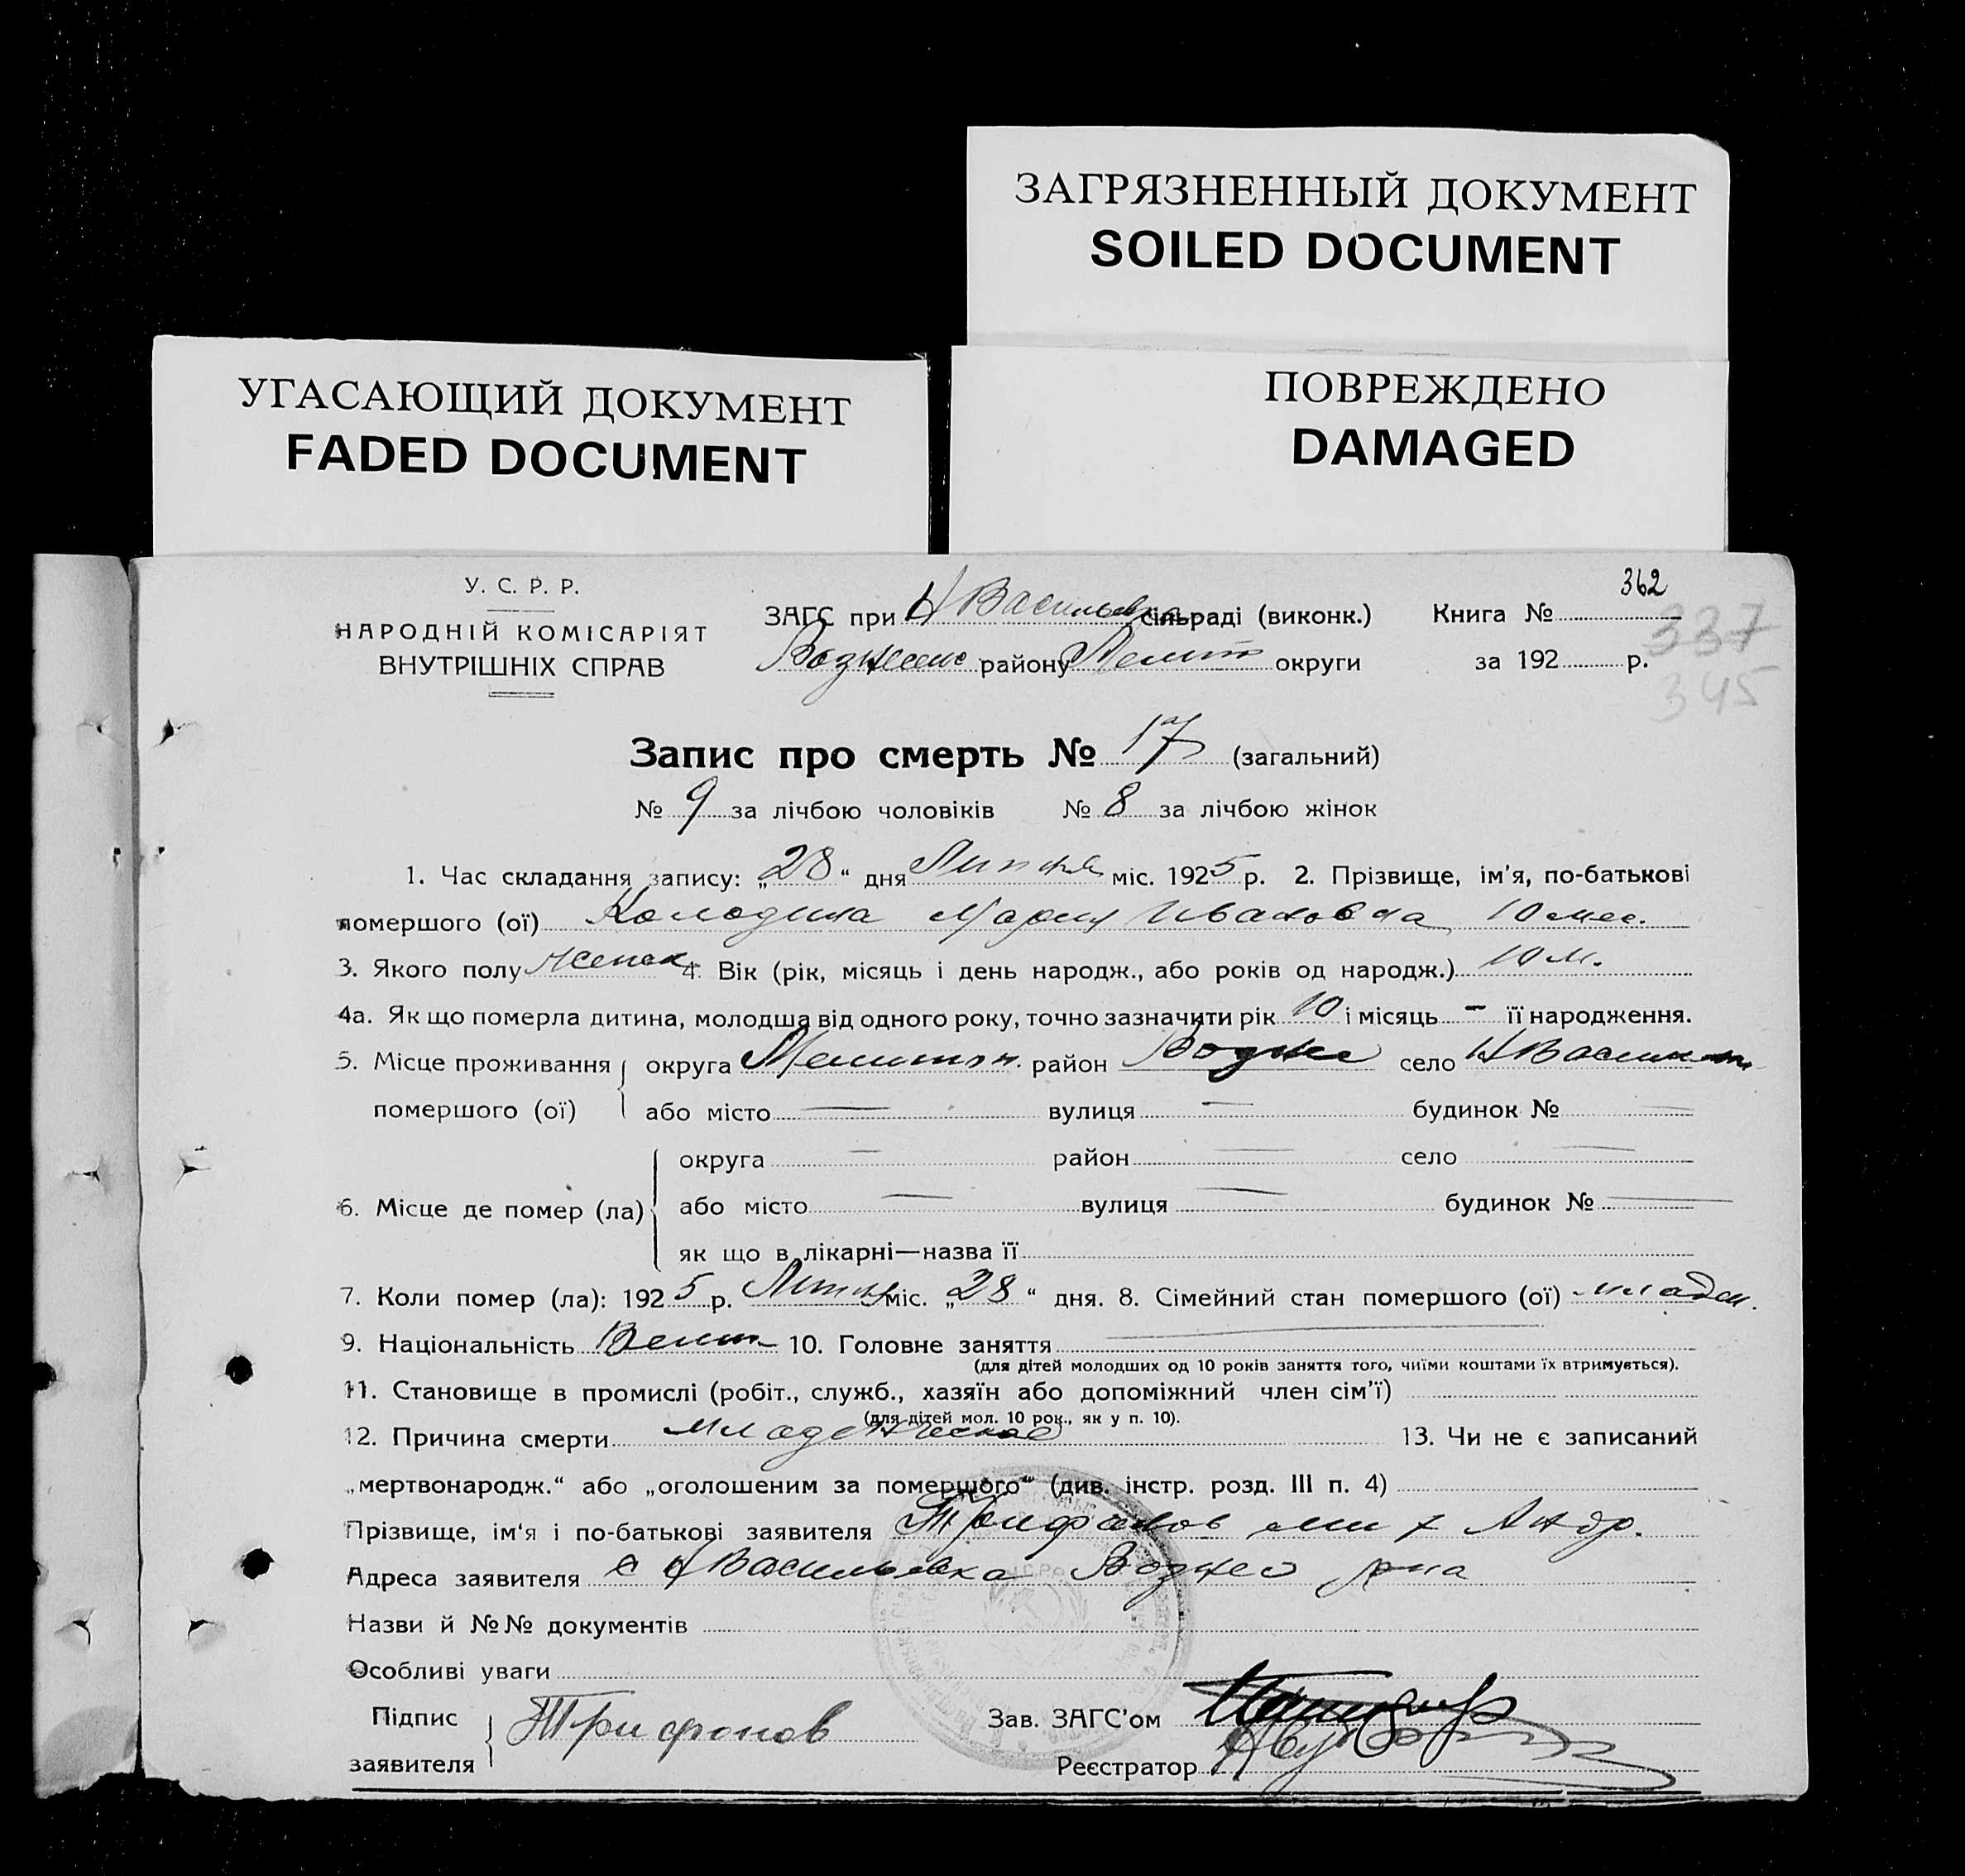 ЗАГРЯЗНЕННЫЙ ДОКУМЕНТ
SOILED DOCUMENT
УГАСАЮЩИЙ ДОКУМЕНТ
FADED DOCUMENT
ПОВРЕЖДЕНО
DAMAGED
У. С. Р. Р.
НАРОДНІЙ КОМІСАРІЯТ
ВНУТРІШНІХ СПРАВ
ЗАГС при Н Васильевка сільраді (виконк.)
району Мелит округи
Книга № 362
за 192 р.
337
345
Запис про смерть № 17 (загальний)
№ 9 за лічбою чоловіків № 8 за лічбою жінок
1. Час складання запису: „28“ дня Липня міс. 1925 р. 2. Прізвище, ім'я, по-батькові
помершого (ої) Колодина Мария Ивановна 10 мес.
3. Якого полу Женск 4. Вік (рік, місяць і день народж., або років од народж.) 10 м.
4а. Як що померла дитина, молодша від одного року, точно зазначити рік 10 і місяць – її народження.
5. Місце проживання помершого (ої) округа Мелитоп. район село Н Васильев
або місто — вулиця — будинок № —
6. Місце де помер (ла) округа — район — село —
або місто — вулиця — будинок № —
як що в лікарні—назва її
7. Коли помер (ла): 1925 р. Липня міс. „28“ дня. 8. Сімейний стан помершого (ої) младен.
9. Національність 10. Головне заняття —
(для дітей молодших од 10 років заняття того, чиїми коштами їх втримується).
11. Становище в промислі (робіт., служб., хазяїн або допоміжний член сім'ї)
(для дітей мол. 10 рок., як у п. 10).
12. Причина смерти младенческое 13. Чи не є записаний
„мертвонародж.“ або „оголошеним за помершого“ (див. інстр. розд. III п. 4)
Прізвище, ім'я і по-батькові заявителя Трифонов Андр.
Адреса заявителя с Н Васильевка рна
Назви й №№ документів
Особливі уваги
Підпис заявителя Трифонов
Зав. ЗАГС'ом
Реєстратор